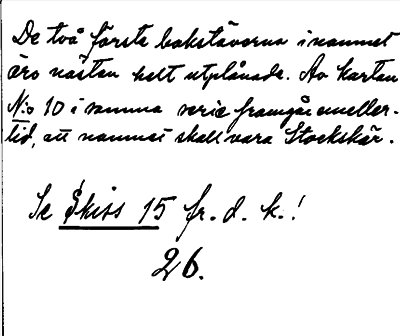 De två första bokstäverna i namnet
äro nästan helt utplånade. Av kartan
N:o 10 i samma serie framgår emeller-
tid, att namnet skall vara Stockskär.
Se Skiss 15 fr. d. k.!
26.